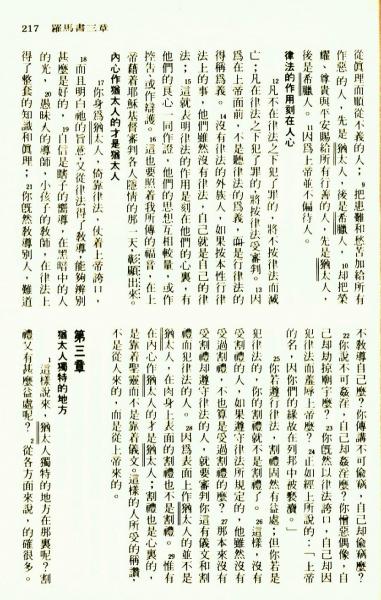 217　羅馬書三章
從眞理而順從不義的人；9把患難和愁苦加給所有
作惡的人，先是猶太人，後是希臘人，10却把榮
耀、尊貴與平安賜給所有行善的人，先是猶太人，
後是希臘人。11因爲上帝並不偏待人。
律法的作用刻在人心
12凡不在律法之下犯了罪的，將不按律法而滅
亡；凡在律法之下犯了罪的，將按律法受審判。13因
爲在上帝面前，不是聽律法的爲義，而是行律法的
得稱爲義。14沒有律法的外族人，如果按本性行律
法上的事，他們雖然沒有律法，自己就是自己的律
法；15這就表明律法的作用是刻在他們的心裏，有
他們的良心一同作證，他們的思想互相較量，或作
控告，或作辯護。16這也要照着我所傳的福音，在上
帝藉着耶穌基督審判各人隱情的那一天，彰顯出來。
內心作猶太人的才是猶太人
17你身爲猶太人，倚靠律法，仗着上帝誇口，
18而且明白祂的旨意，又從律法得了教導，能夠辨別
甚麼是好的，19自信是瞎子的嚮導，在黑暗中的人
的光，20愚昧人的導師，小孩子的教師，在律法上
得了整套的知識和眞理；21你旣然教導別人，難道
不教導自己麼？你傳講不可偷竊，自己却偷竊麼？
22你說不可姦淫，自己却姦淫麼？你憎惡偶像，自
己却劫掠廟宇麼？23你旣然以律法誇口，自己却因
犯律法而羞辱上帝麼？24正如經上所說的：「上帝
的名，因你們的緣故在列邦中被褻瀆。」
25你若遵行律法，割禮固然有益處；但你若是
犯律法的，你的割禮就不是割禮了。26這樣，沒有
受割禮的人，如果遵守律法所規定的，他雖然沒有
受過割禮，不也算是受過割禮的麼？27那本來沒有
受割禮却遵守律法的人，就要審判你這有儀文和割
禮而犯律法的人。28因爲表面上作猶太人的並不是
猶太人，在肉身上表面的割禮也不是割禮。29惟有
在內心作猶太人的才是猶太人；割禮也是心裏的，
是靠着聖靈而不是靠着儀文。這樣的人所受的稱讚，
不是從人來的，而是從上帝來的。
第三章
猶太人獨特的地方
1這樣說來，猶太人獨特的地方在那裏呢？割
禮又有甚麼益處呢？2從各方面來說，的確很多。